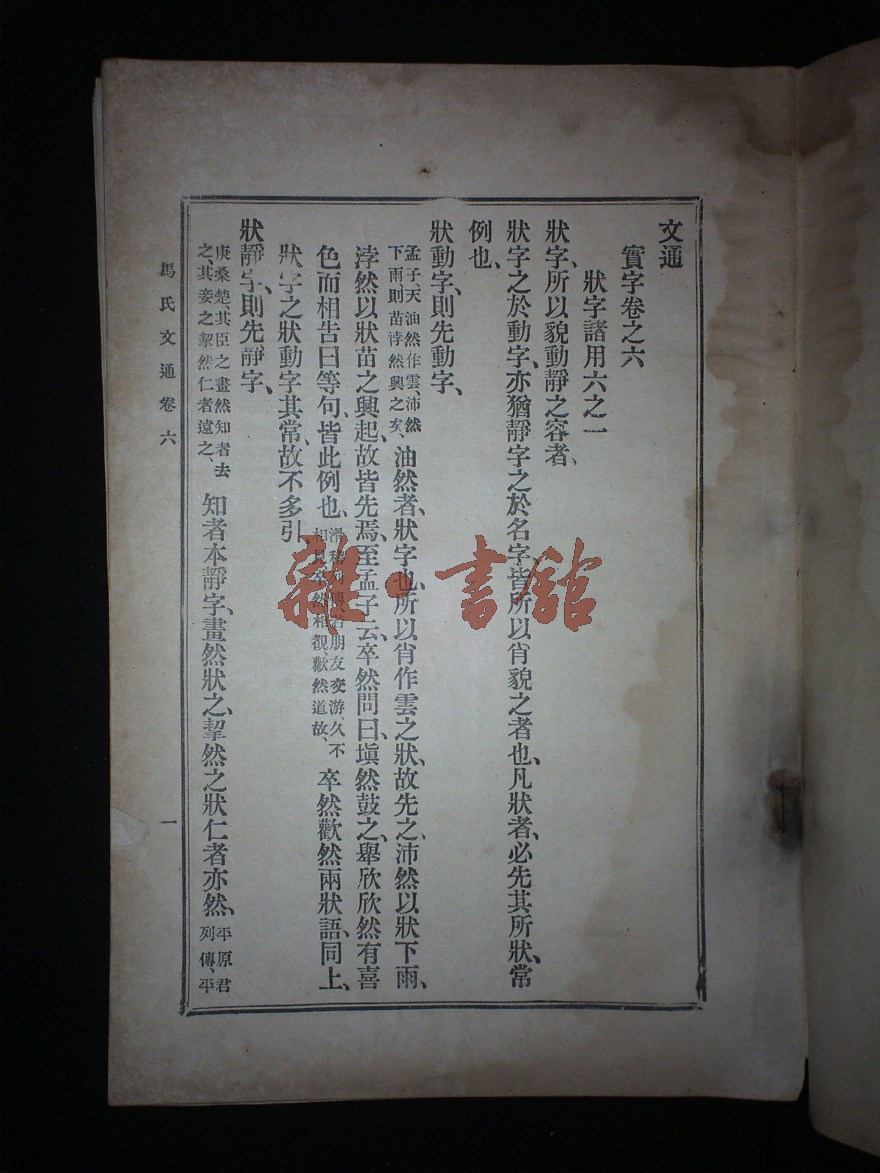 文通
實字卷之六
狀字諸用六之一
狀字、所以貌動靜之容者、
狀字之於動字、亦猶靜字之於名字、皆所以肖貌之者也、凡狀者、必先其所狀、常
例也、
狀動字、則先動字、
孟子天油然作雲、沛然
下雨、則苗浡然興之矣、
油然者、狀字也、所以肖作雲之狀、故先之、沛然以狀下雨、
浡然以狀苗之興起、故皆先焉、至孟子云、卒然問曰、塡然鼓之、舉欣欣然有喜
色而相告曰等句、皆此例也、
滑稽列傳、若朋友交游、久不
相見、卒然相覩、歡然道故、
卒然歡然兩狀語、同上、
狀字之狀動字其常、故不多引、
狀靜字、則先靜字、
庚桑楚、其臣之畫然知者去
之、其妾之挈然仁者遠之、
知者本靜字、畫然狀之、挈然之狀仁者亦然、
平原君
列傳、平
馬氏文通卷六
一
雜·書館